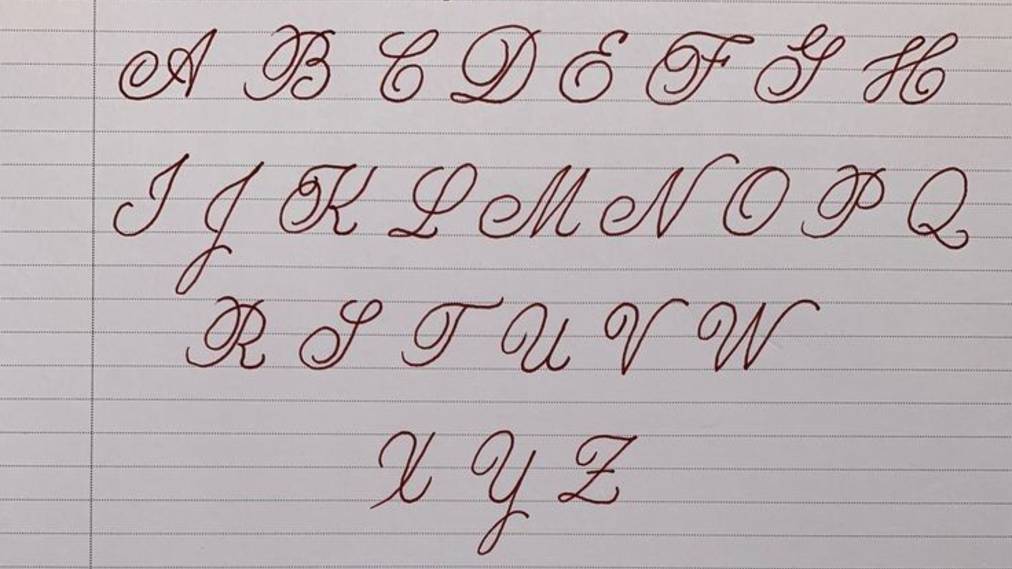 A B C D E F G H
I J K L M N O P Q
R S T U V W
X Y Z